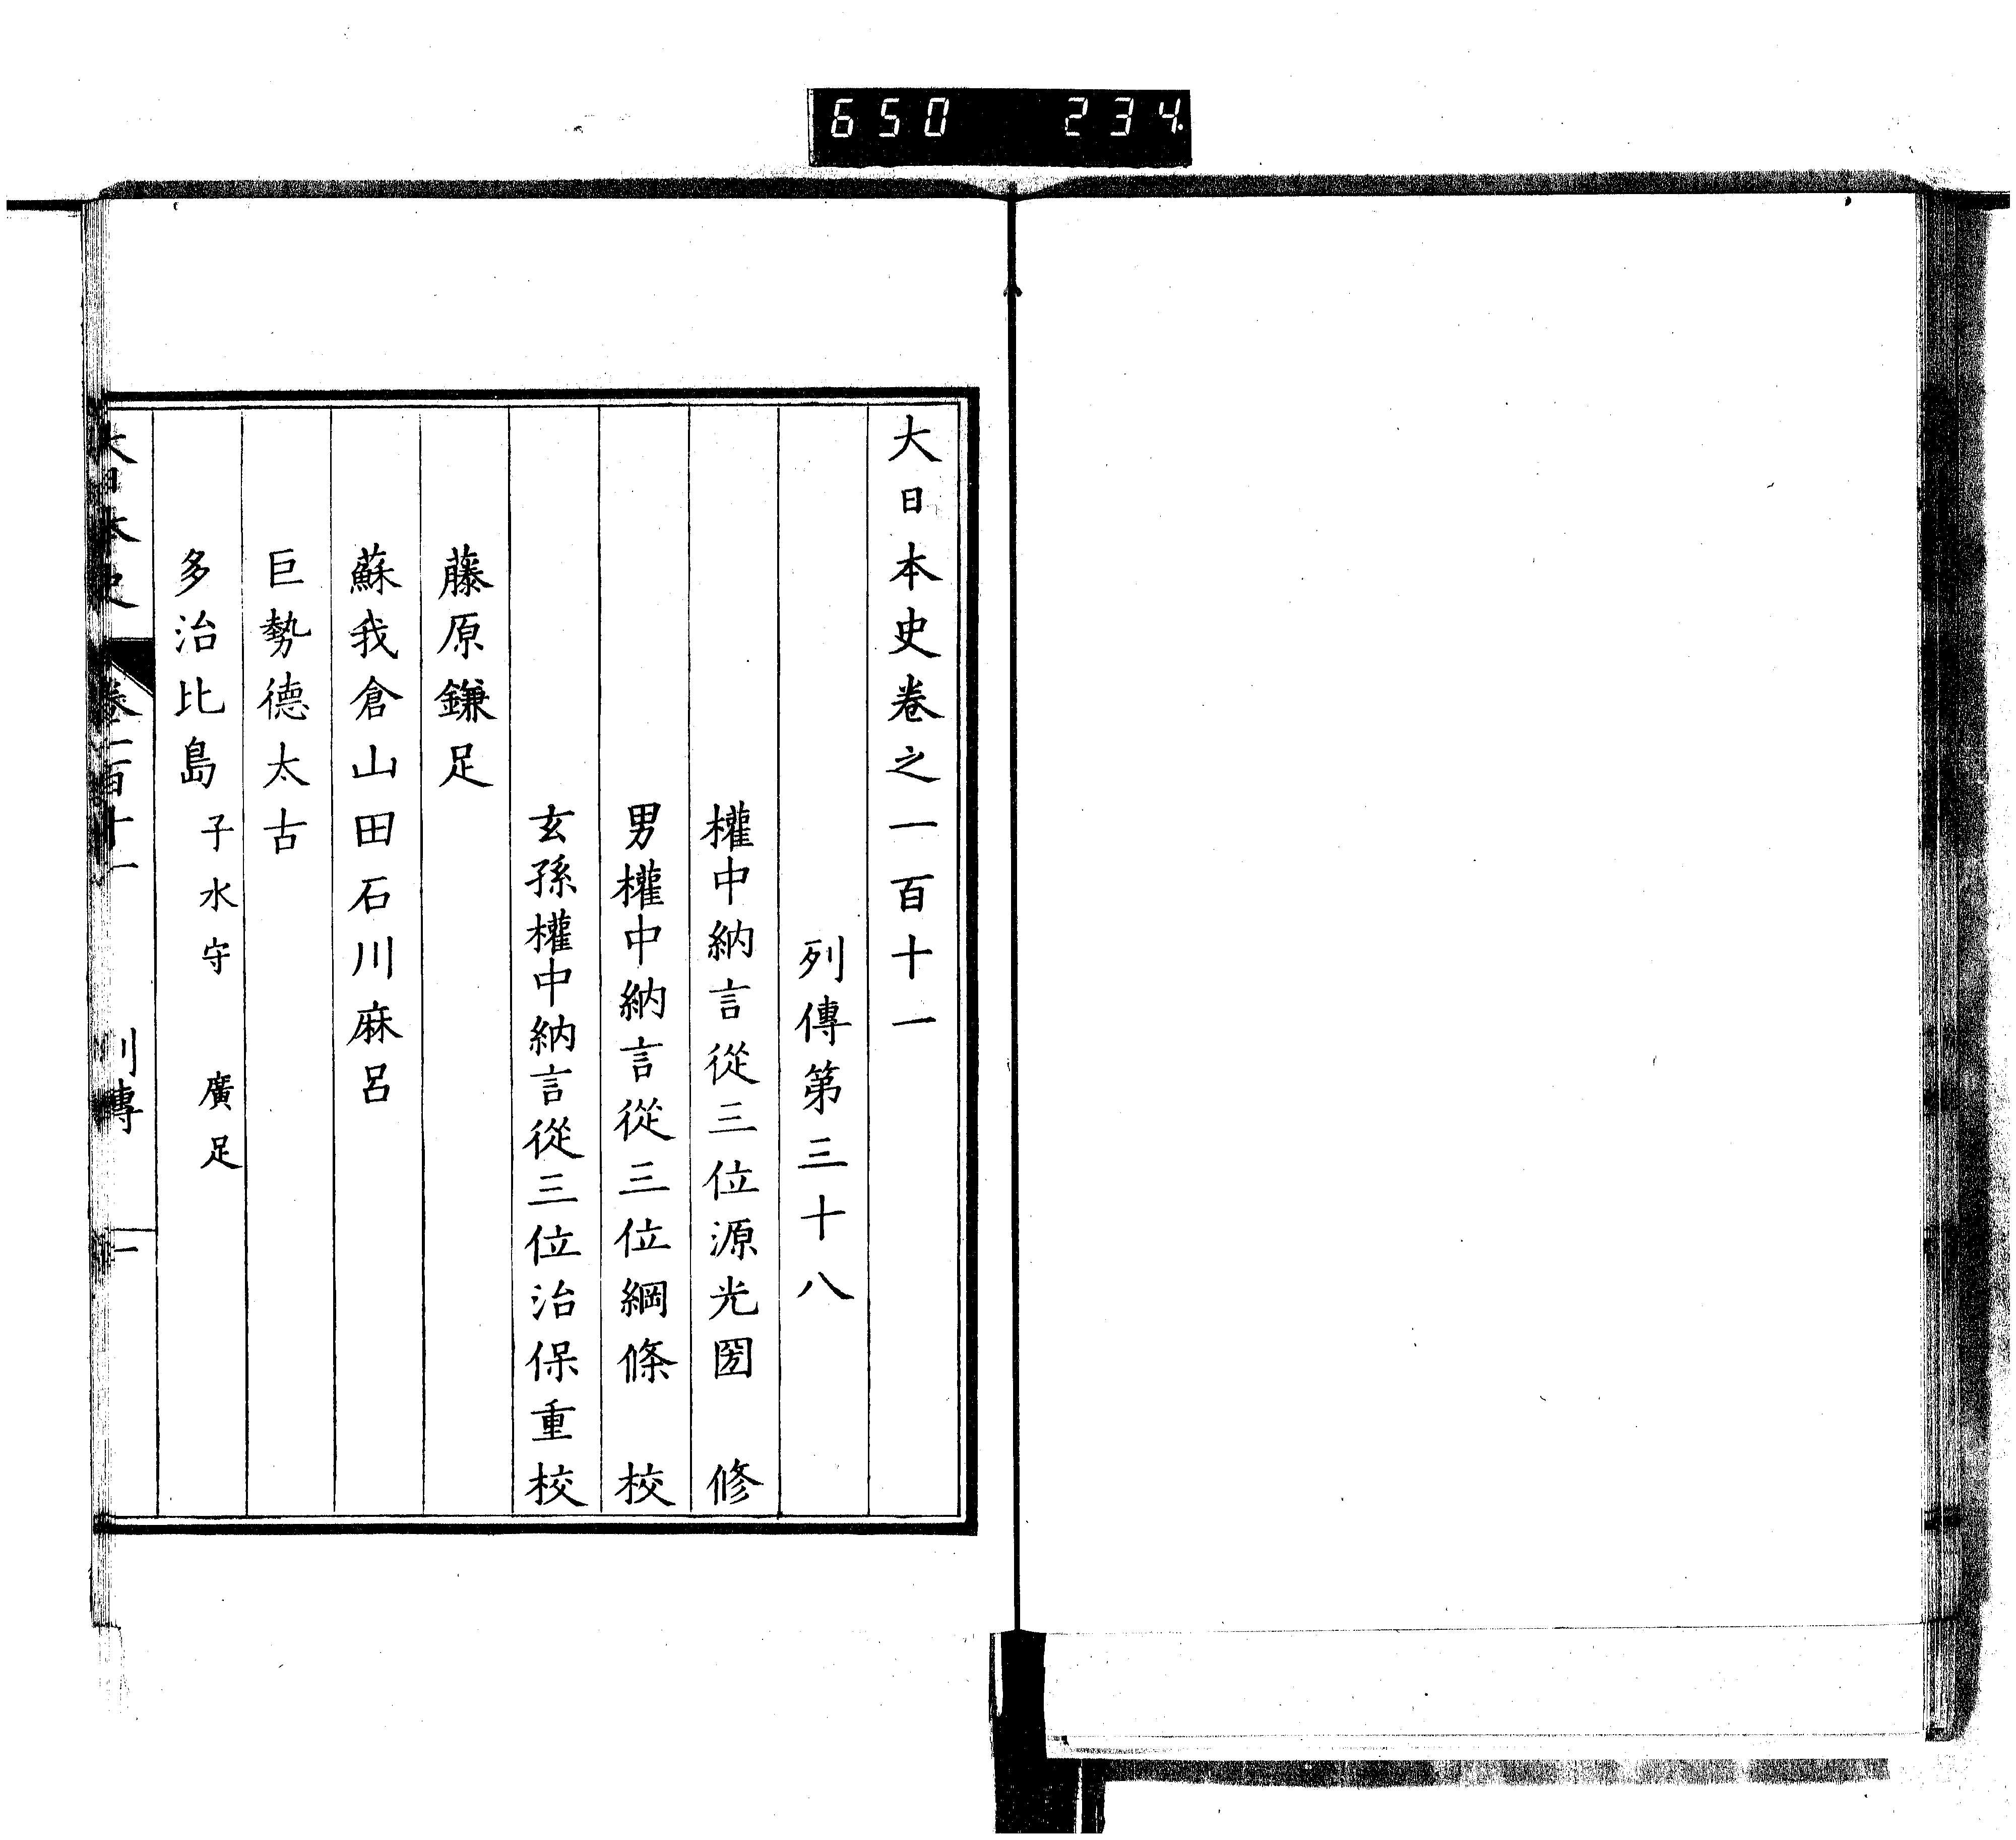 650 234.
大日本史卷之一百十一
列傳第三十八
權中納言從三位源光圀 修
男權中納言從三位綱條 校
玄孫權中納言從三位治保重校
藤原鎌足
蘇我倉山田石川麻呂
巨勢德太古
多治比島 子水守 廣足
大日本史 卷一百十一 列傳 一